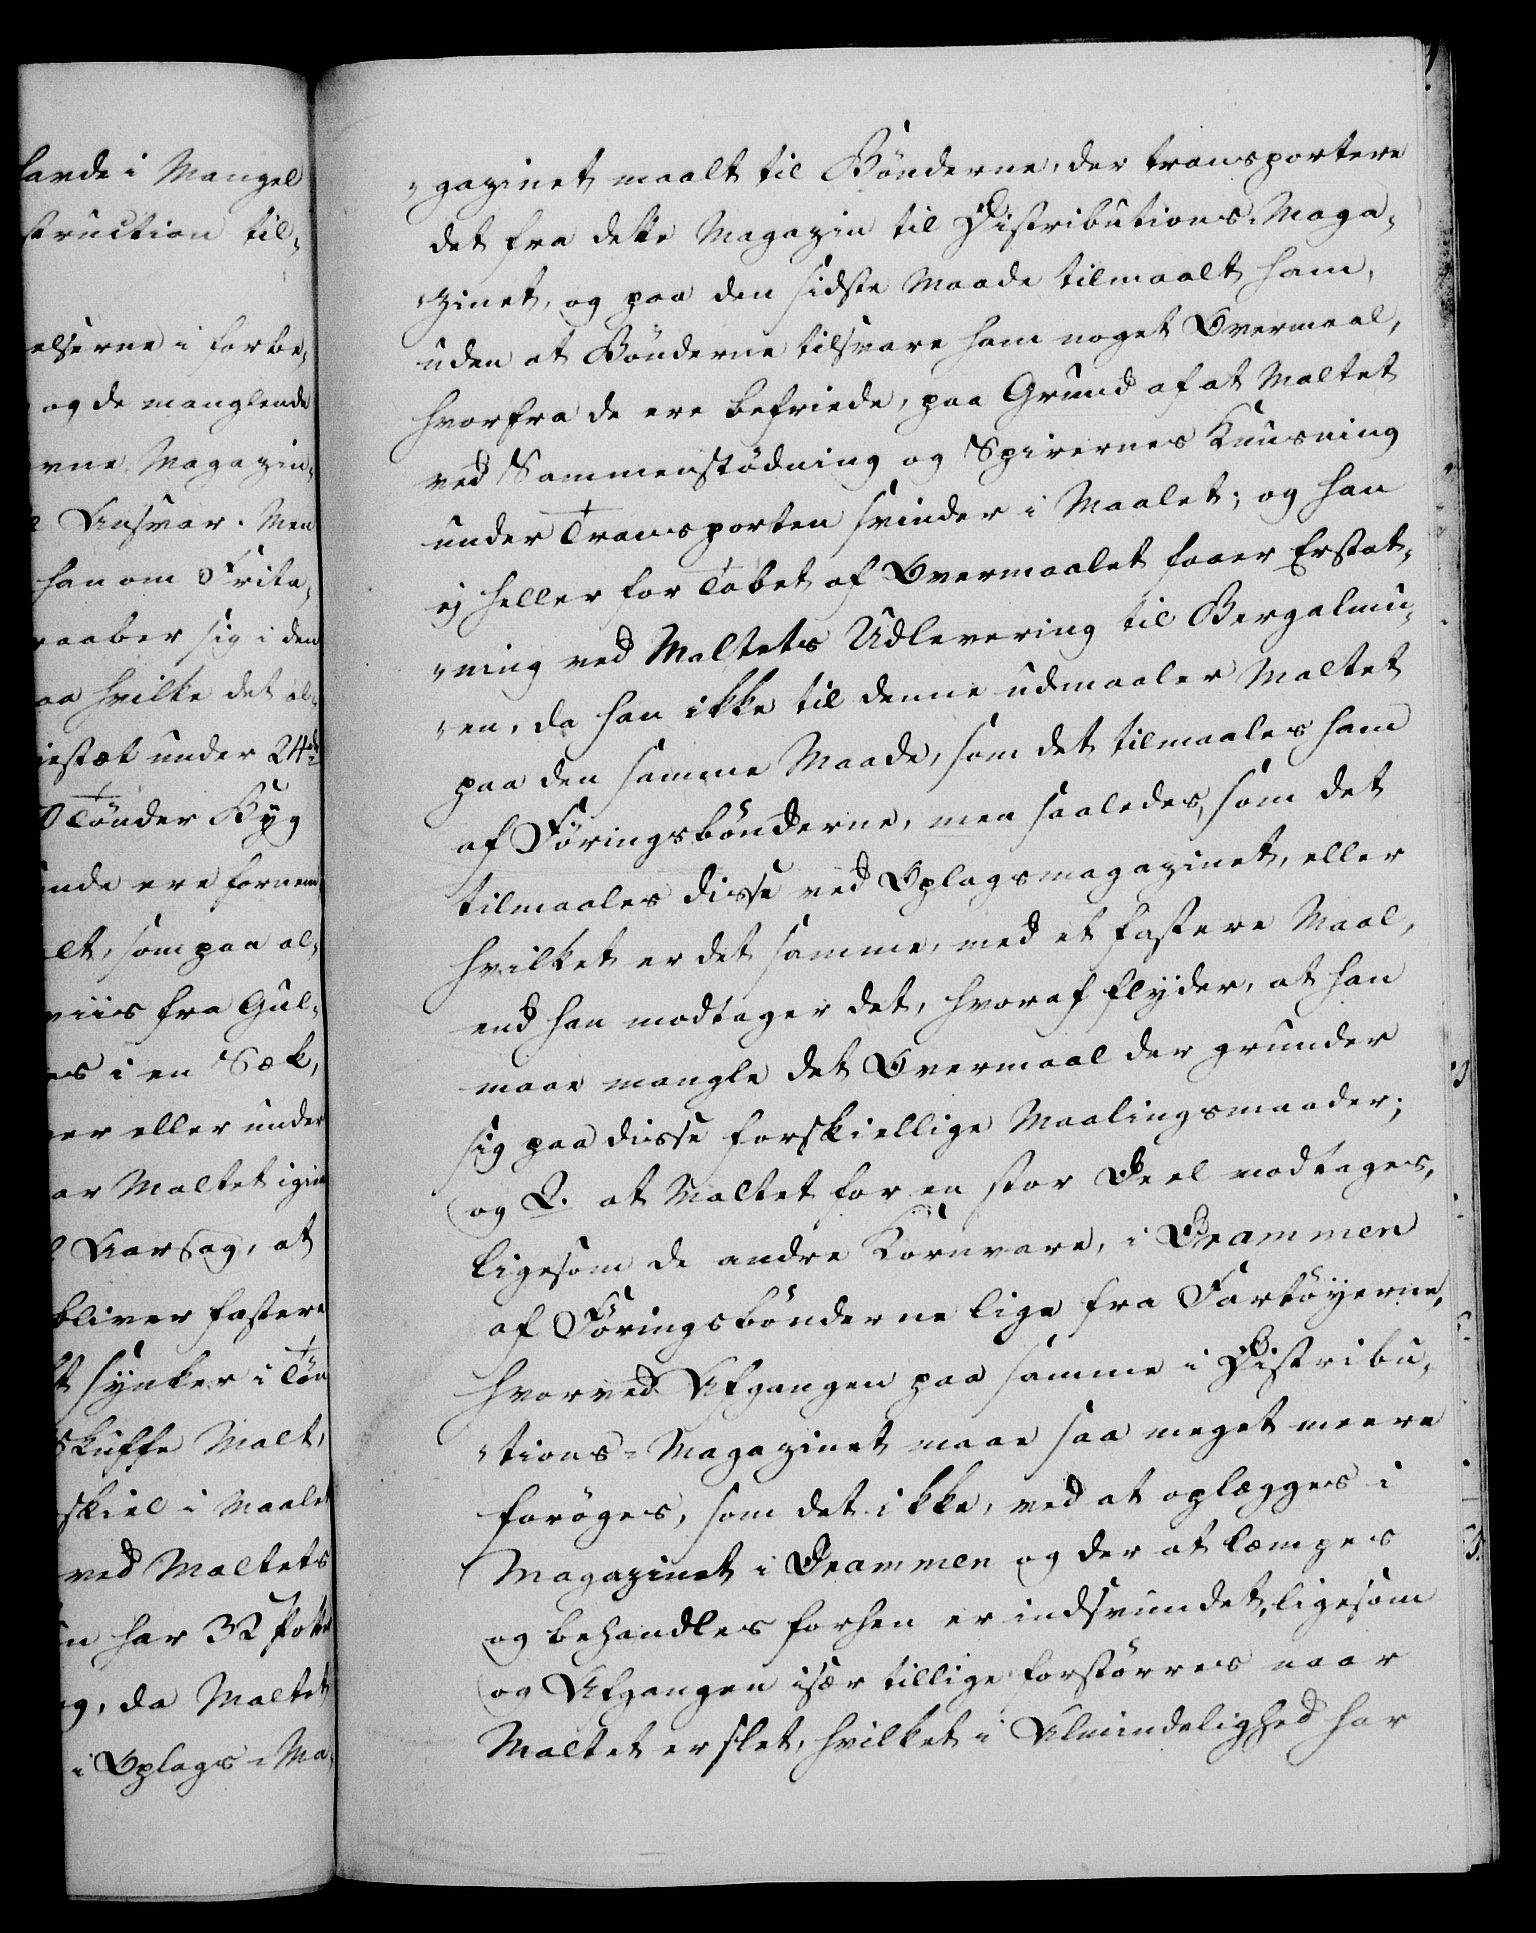 lavde i Mangel
struction til-
elserne i forbe-
og de manglende
rne Magazin-
Ansvar. Men
han om Frita-
raaber sig i den
aa hvilke det al-
iestæt under 24de
0 Tönder Byg
inde ere fornem
lt, som paa al-
viis fra Gul-
es i en Sæk,
er eller under
ar Maltet igien
Aarsag, at
bliver fastere
t synker i Tön
Skuffe Malt,
skiel i Maalet
ved Maltets
n har 32 Potter
g, da Maltet
i Oplags-Ma-
gazinet maalt til Bönderne, der transportere
det fra dette Magazin til Distributions-Maga-
zinet, og paa den sidste Maade tilmaalt ham,
uden at Bönderne tilsvare ham noget Overmaal,
hvorfra de ere befriede, paa Grund af at Maltet
ved Sammenstödning og Spirernes Knusning
under Transporten svinder i Maalet; og han
ej heller for Tabet af Overmaalet faaer Erstat-
ning ved Maltets Udlevering til Bergalmu-
en, da han ikke til denne udmaaler Maltet
paa den samme Maade, som det tilmaales ham
af Föringsbönderne, men saaledes, som det
tilmaales disse ved Oplagsmagazinet, eller
hvilket er det samme, med et fastere Maal,
end han modtager det, hvoraf flyder, at han
maae mangle det Overmaal der grunder
sig paa disse forskiellige Maalingsmaader;
og 2. at Maltet for en stor Deel modtages,
ligesom de andre Kornvare, i Drammen
af Föringsbönderne lige fra Fartöyerne,
hvorved Afgangen paa samme i Distribu-
tions-Magazinet maae saa meget meere
foröges, som det ikke, ved at oplægges i
Magazinet i Drammen og der at læmpes
og behandles forhen er indsvundet, ligesom
og Afgangen især tillige forstörres naar
Maltet er slet, hvilket i Almindelighed har